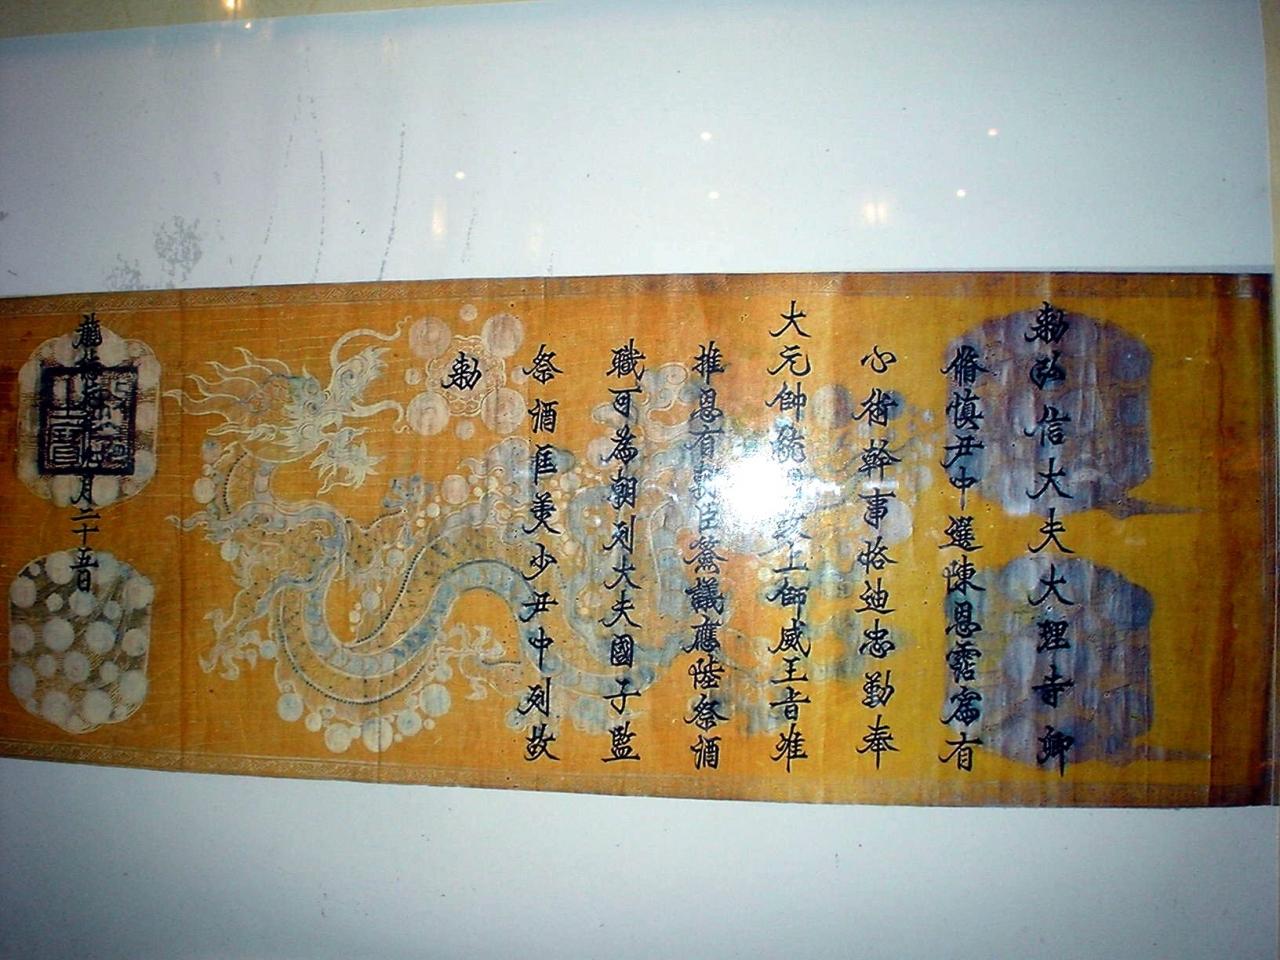 勅弘信大夫大理寺卿
脩慎尹中選陳恩霑寓有
心術幹事恪迪忠勤奉
大元帥統國政上師威王旨準
推恩有朝臣僉議應陞祭酒
職可為朝列大夫國子監
祭酒匡美少尹中列故
勅
龍 月二十五日